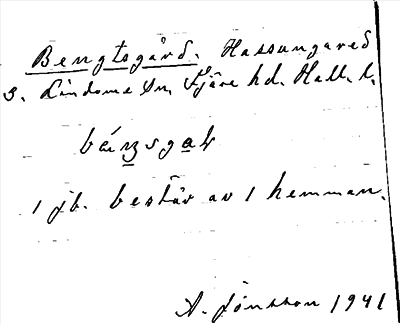 Bengtsgård. Hassungared
3. Lindome sn. Fjäre hd. Hall. l.
1 jb. består av 1 hemman.
A. Jönsson 1941